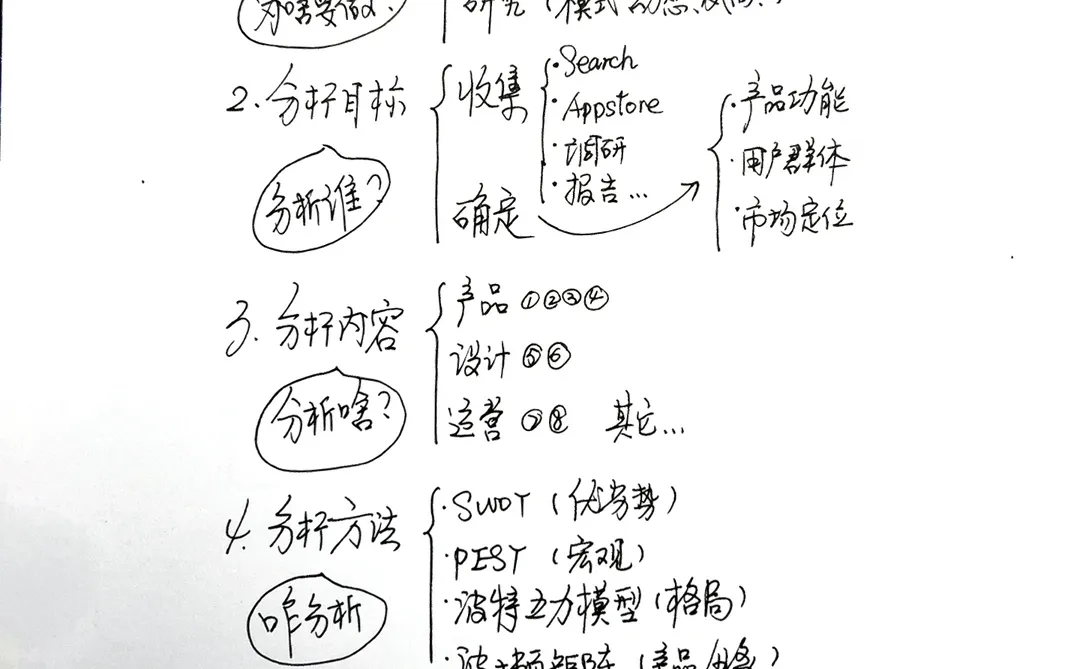 为啥要做?
研究(模式
2. 分析目标
分析谁?
收集
· Search
· Appstore
· 调研
· 报告...
确定
· 产品功能
· 用户群体
· 市场定位
3. 分析内容
分析啥?
产品 ①②③④
设计 ⑤⑥
运营 ⑦⑧ 其它...
4. 分析方法
咋分析
· SWOT (优劣势)
· PEST (宏观)
· 波特五力模型 (格局)